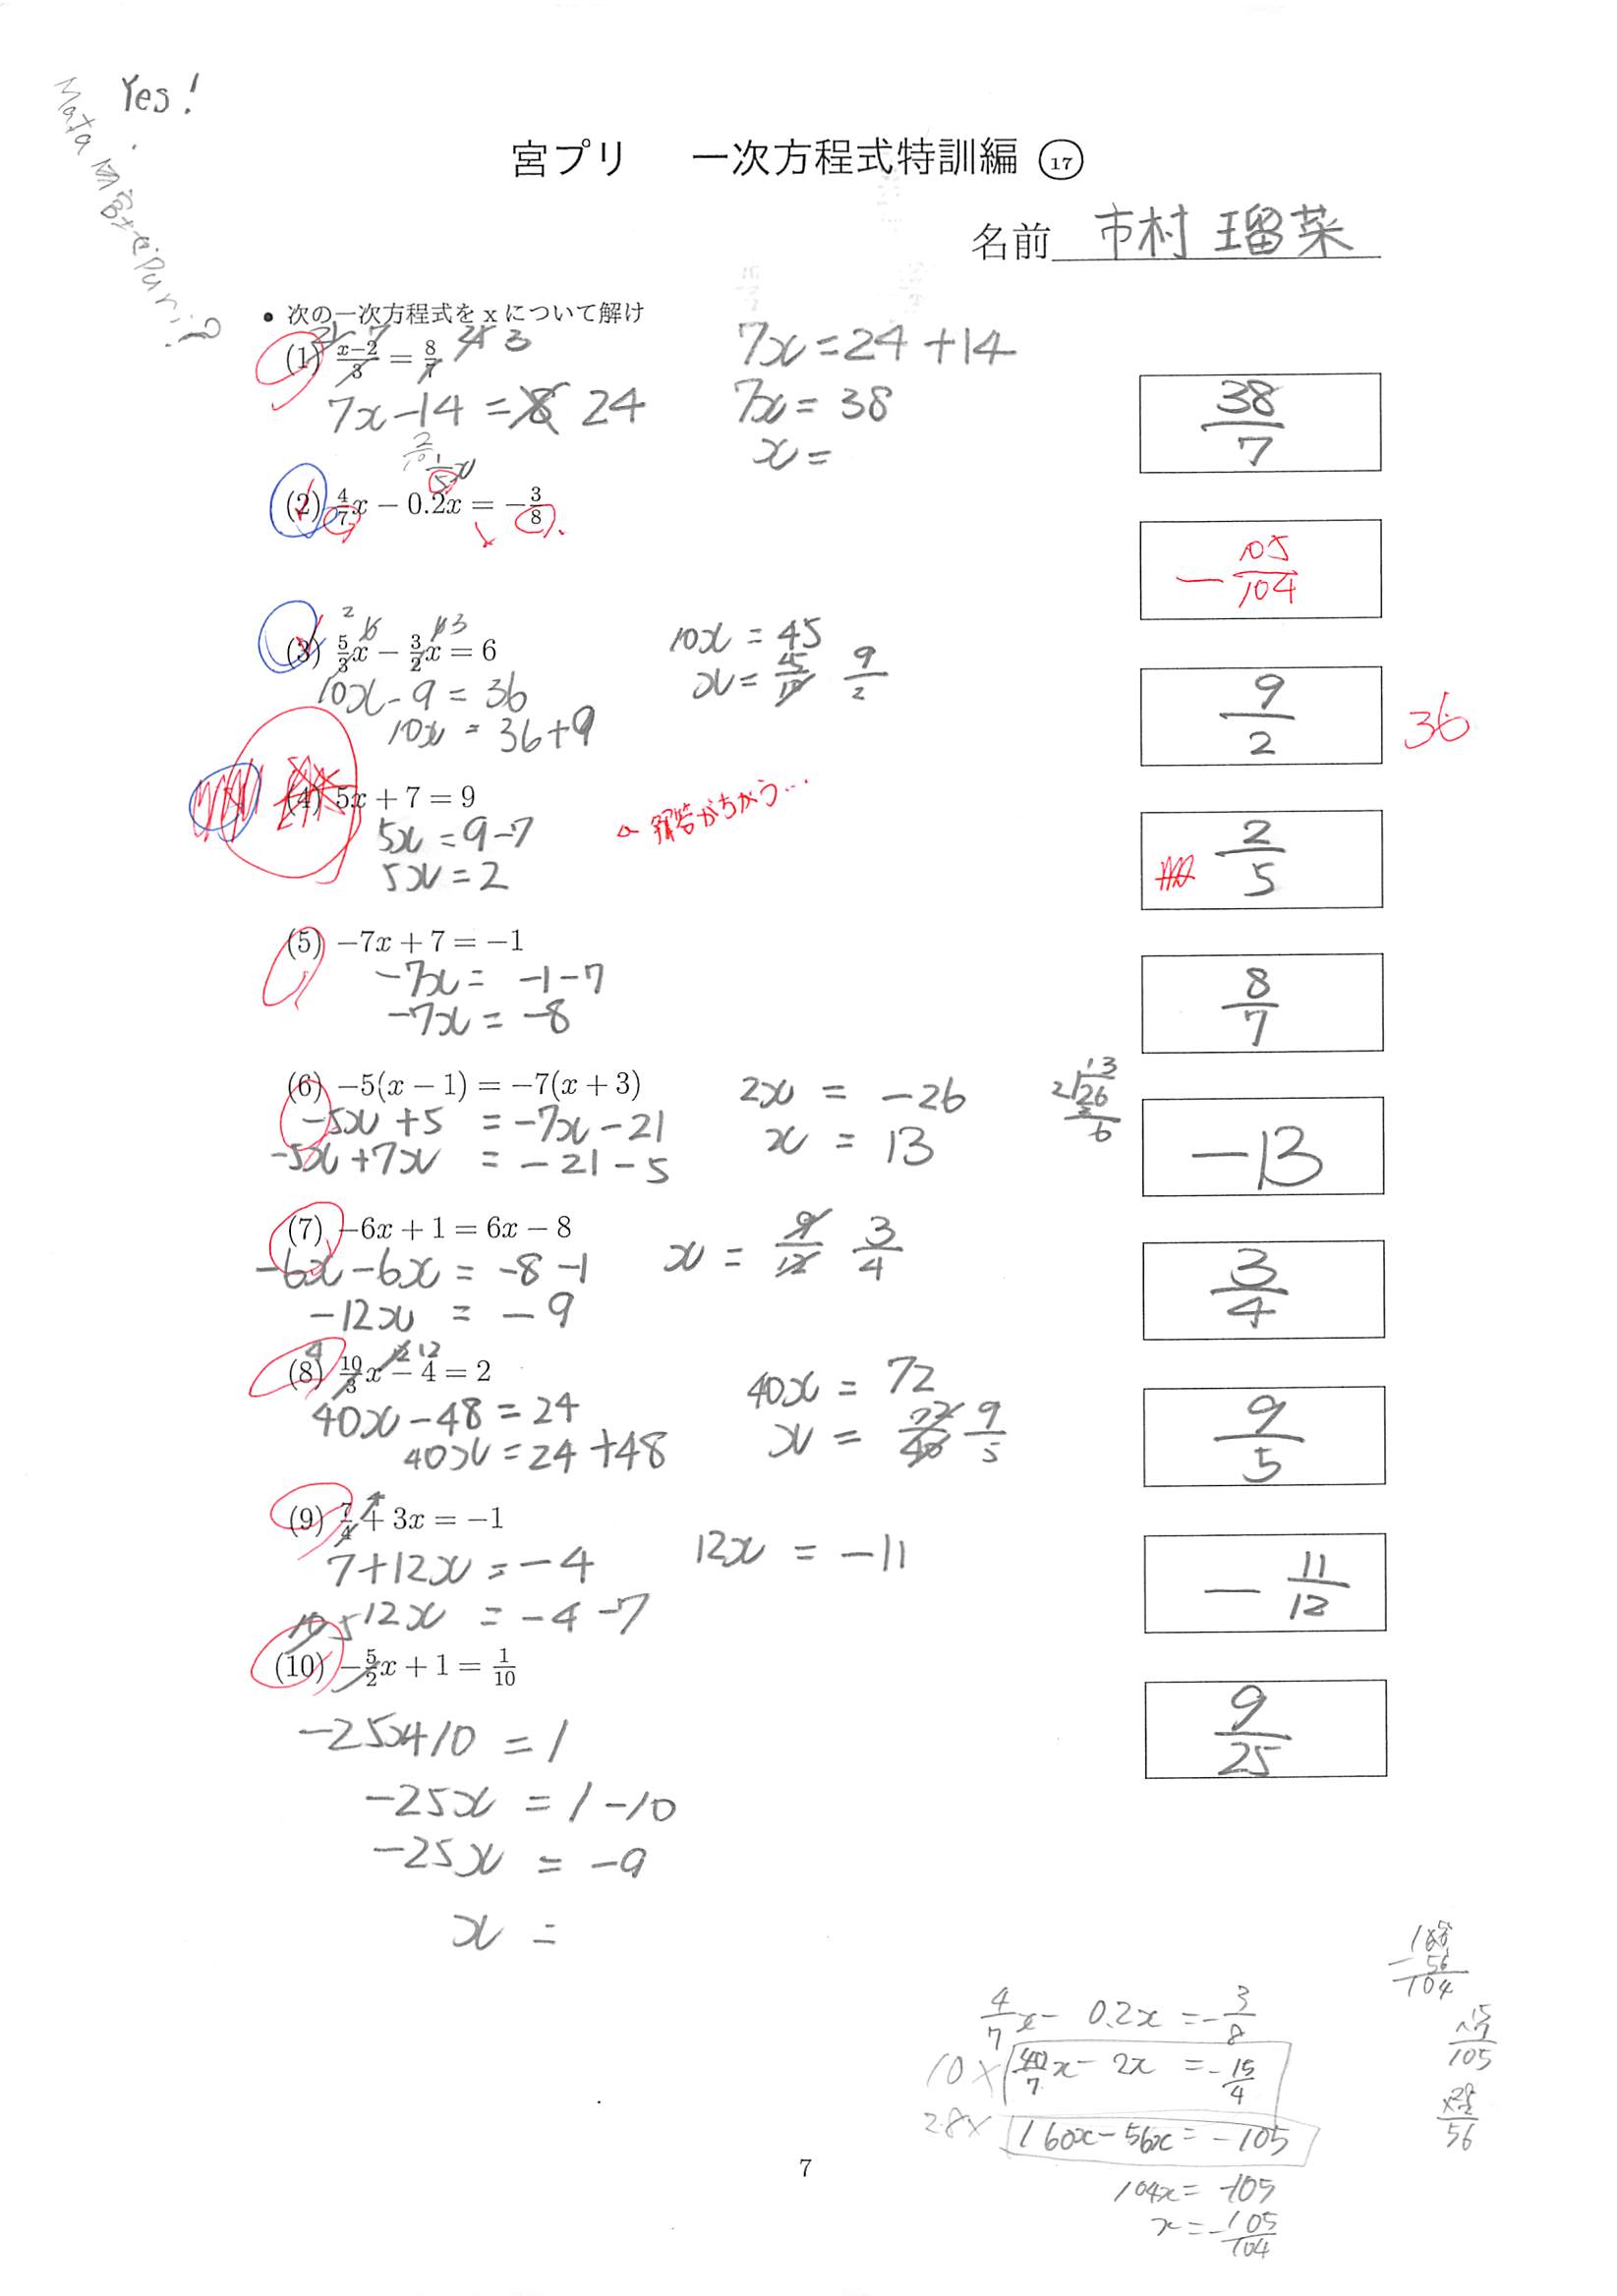 Yes!
宮プリ 一次方程式特訓編 17
名前 市村 瑠菜
• 次の一次方程式を x について解け
(1) (x−2)/3 = 8/7 21 7 3
7x−14 = 24
7x = 24 + 14
7x = 38
x =
38/7
2/10 1/5 x
(2) 4/7x − 0.2x = −3/8
− 105/104
(3) 5/3x − 3/2x = 6 2 6 3
10x − 9 = 36
10x = 36+9
10x = 45
x = 45/10 9/2
9/2
36
(4) 5x + 7 = 9
5x = 9−7
5x = 2
解答がちがう…
2/5
(5) −7x + 7 = −1
−7x = −1−7
−7x = −8
8/7
(6) −5(x − 1) = −7(x + 3)
−5x +5 = −7x−21
−5x+7x = −21−5
2x = −26
x = 13
13
2)26
2
6
−13
(7) −6x + 1 = 6x − 8
−6x−6x = −8−1
−12x = −9
x = 9/12 3/4
3/4
4 12 12
(8) 10/3x − 4 = 2
40x−48 = 24
40x = 24+48
40x = 72
x = 72/40 9/5
9/5
(9) 7/4 + 3x = −1
7+12x = −4
12x = −4−7
12x = −11
− 11/12
10 5
(10) −5/2x + 1 = 1/10
−25x+10 = 1
−25x = 1−10
−25x = −9
x =
9/25
4/7x − 0.2x = −3/8
10× 40/7x − 2x = −15/4
28× 160x−56x = −105
104x = −105
x = −105/104
− 56
104
15
×7
105
×2
56
7